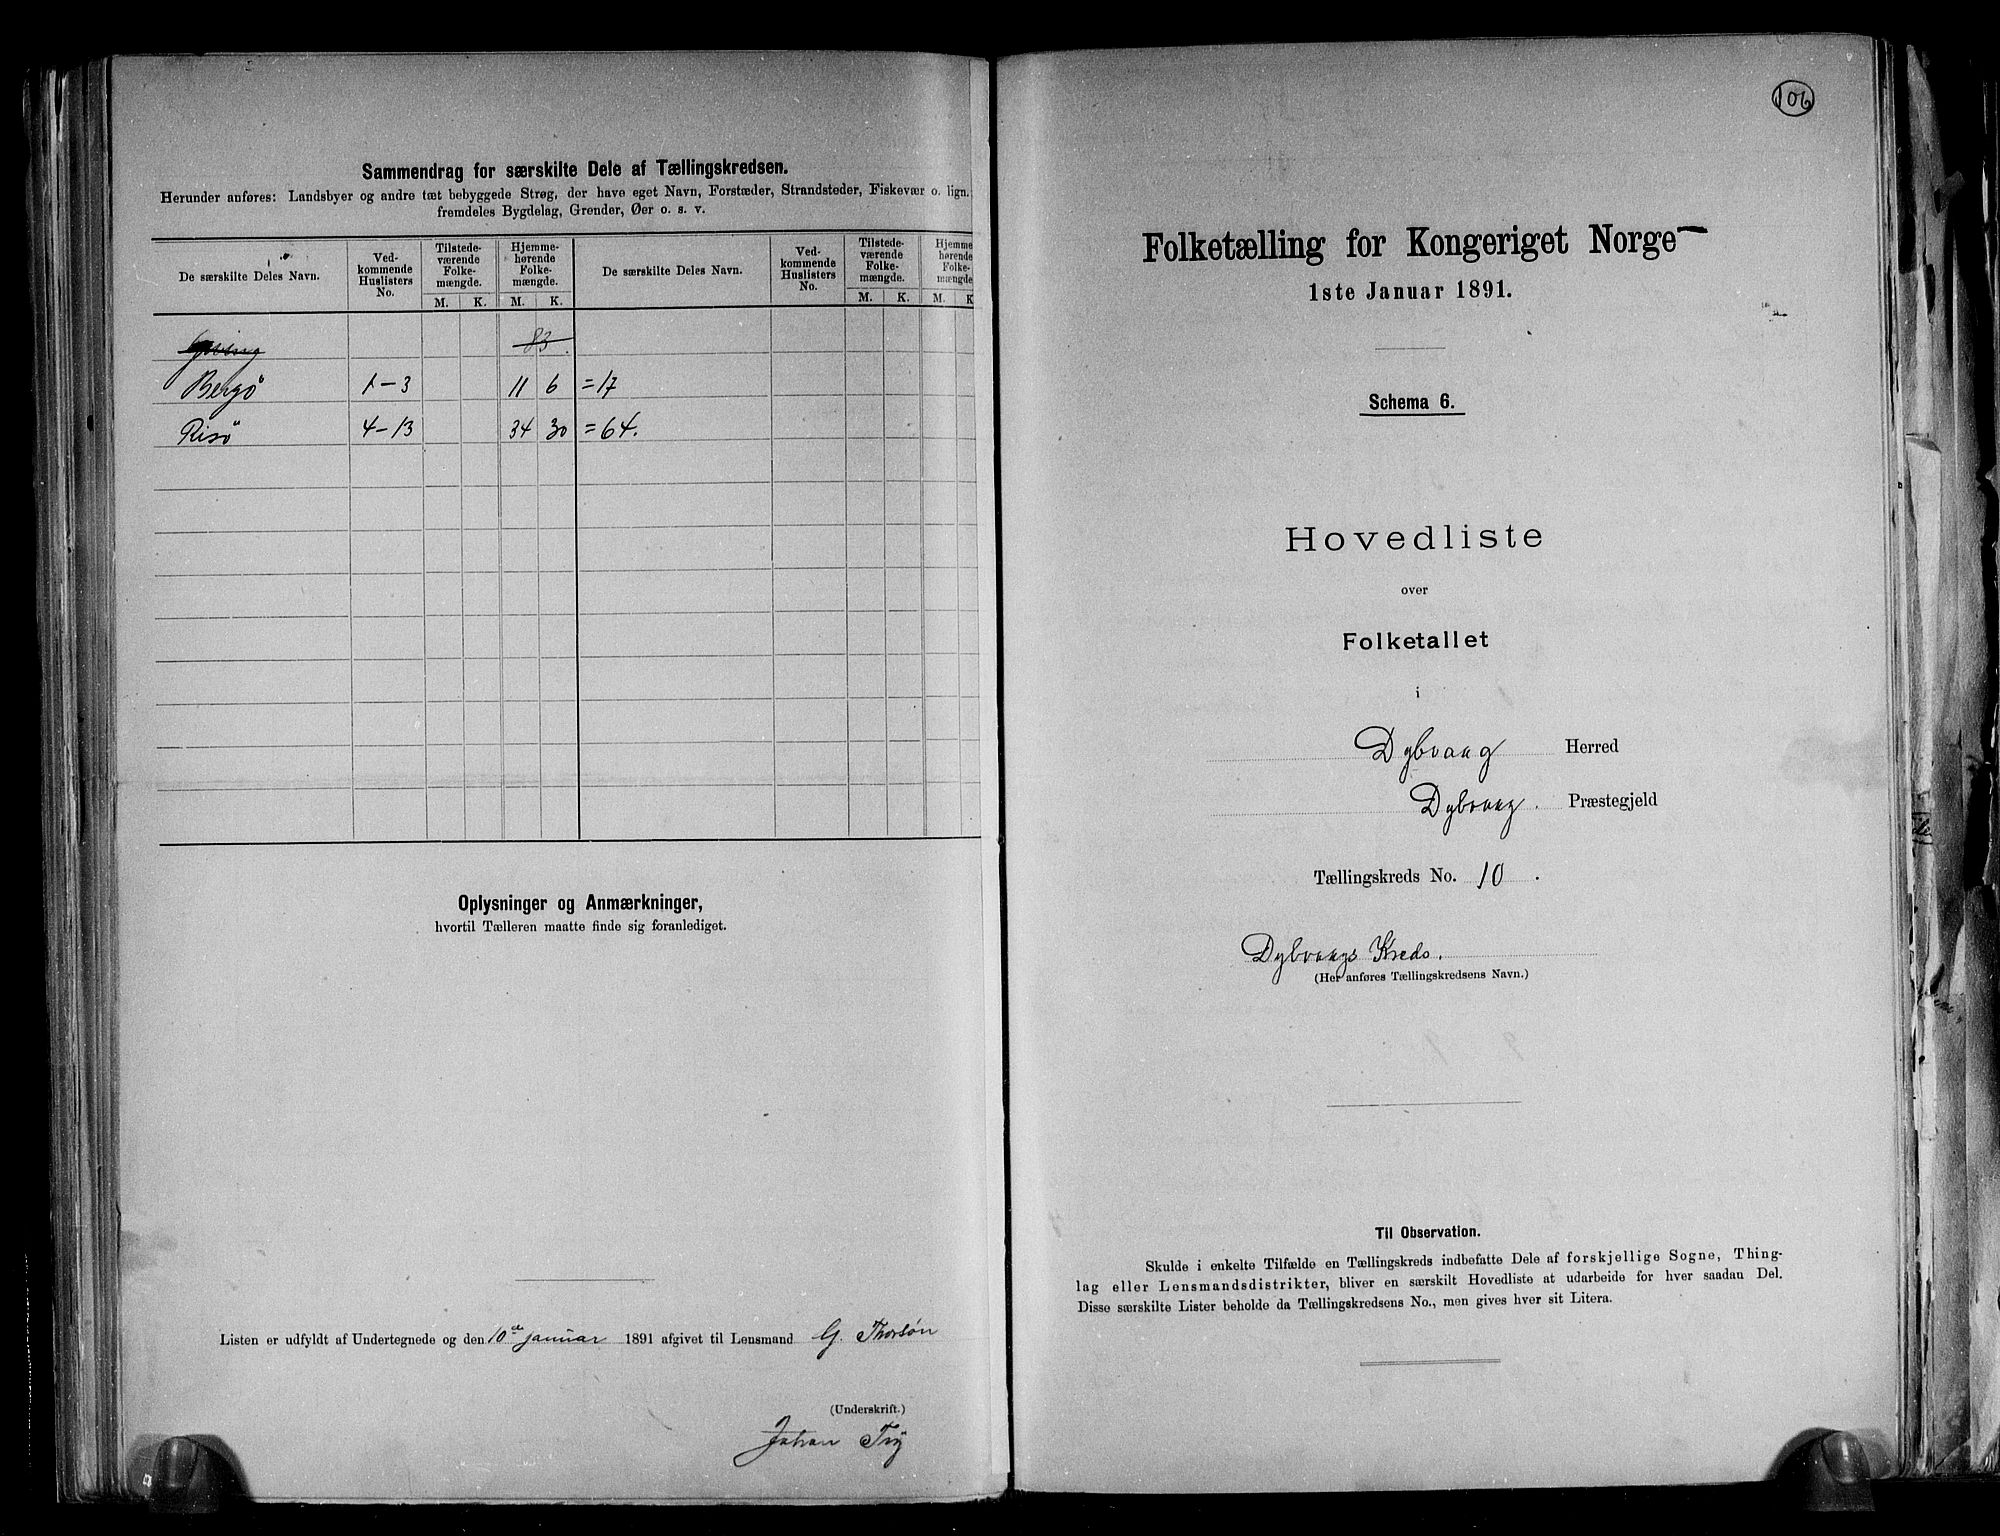 Sammendrag for særskilte Dele af Tællingskredsen.
Herunder anføres: Landsbyer og andre tæt bebyggede Strøg, der have eget Navn, Forstæder, Strandsteder, Fiskevær o. lign.
fremdeles Bygdelag, Grender, Øer o. s. v.
De særskilte Deles Navn. Ved-kommende Huslisters No. Tilstede-værende Folke-mængde. Hjemme-hørende Folke-mængde. De særskilte Deles Navn. Ved-kommende Huslisters No. Tilstede-værende Folke-mængde. Hjemme-hørende Folke-mængde
M. K. M. K. M. K. M. K
83
Bergø 1-3 11 6 =17
Risø 4-13 34 30 =64.
Oplysninger og Anmærkninger,
hvortil Tælleren maatte finde sig foranlediget.
Listen er udfyldt af Undertegnede og den 10de januar 1891 afgivet til Lensmand G. Thorsøn
(Underskrift.)
Johan
106
Folketælling for Kongeriget Norge
1ste Januar 1891.
Schema 6.
Hovedliste
over
Folketallet
i
Dybvaag Herred
Dybvaag. Præstegjeld
Tællingskreds No. 10.
Dybvaags Kreds.
(Her anføres Tællingskredsens Navn.)
Til Observation.
Skulde i enkelte Tilfælde en Tællingskreds indbefatte Dele af forskjellige Sogne, Thing-
lag eller Lensmandsdistrikter, bliver en særskilt Hovedliste at udarbeide for hver saadan Del.
Disse særskilte Lister beholde da Tællingskredsens No., men gives hver sit Litera.